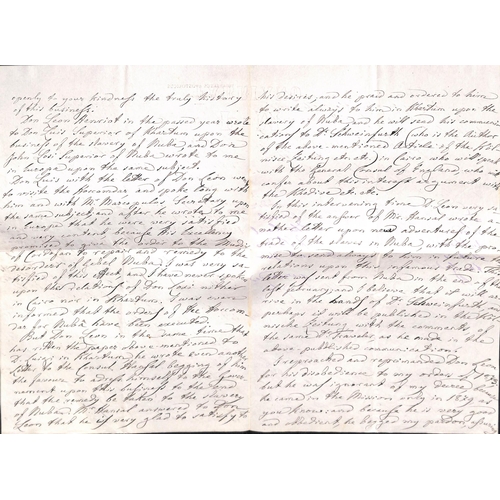 openly to your kindness the truly history
of this business.
Don Leon Henriot in the passed year wrote
to Don Luis Superior of Khartum upon the
business of the slavery of Nuba and Don
John Losi Superior of Nuba wrote to me
in Europe upon the same subject
Don Luis with the letter of Don Leon went
to visit the and spoke long with
him and with Mr Marcopulos Secretary upon
the same subject; and after he wrote to me
in Europe that he were very satisfied
and very content, because his Excellency
promised to give the order to the Mudir
of Cordofan to repair and remedy to the
disorders of Gebel Nuba. I was very sa-
tisfied of this effect, and I have never spoke
upon this relations of Don Losi neither
in Cairo nor in Khartum; I was even
informed that the orders of the
for Nuba have been executed.
But Don Leon in the same time that
has written the paper above-mentioned to
Dn Luigi in Khartum he wrote even another
letter to the Consul Hansal begging of him
the favour to adress himself to the
vernement upon the business to the end
that the remedy be taken to the slavery
of Nuba. Mr Hansal answered to Don
Leon that he is very glad to satisfy to
his desires, and he pread and ordered to him
to write always to him in Khartum upon the
slavery of Nuba and he will send his communi-
cations to Dr Schweinfurth (who is the Author
of the above-mentioned Article of the
) in Cairo who will speak
with the General Consul of England, who will
confer about this interest argument with
the Khedive etc. etc.
In this intervening time D. Leon very sa-
tisfied of the answer of Mr. Hansal wrote
another letter upon new adventures of the
trade of the slaves in Nuba with the pro-
mise to send always to him in future
relations upon this infamous trade. This
letter was sent from Nuba in the end of
last January; and I believe that it will ar-
rive in the hands of Dr Schweinfurth
perhaps it will be published in the
with the comments of
the same Traveller as he made in the
above publicated communications.
I reproached and reprimanded Don Leon
for his disobedience to my order of
but he was ignorant of my decree because
he came in the Mission only in 1879 as
you know; and because he is very good
and obedient, he begged my pardon